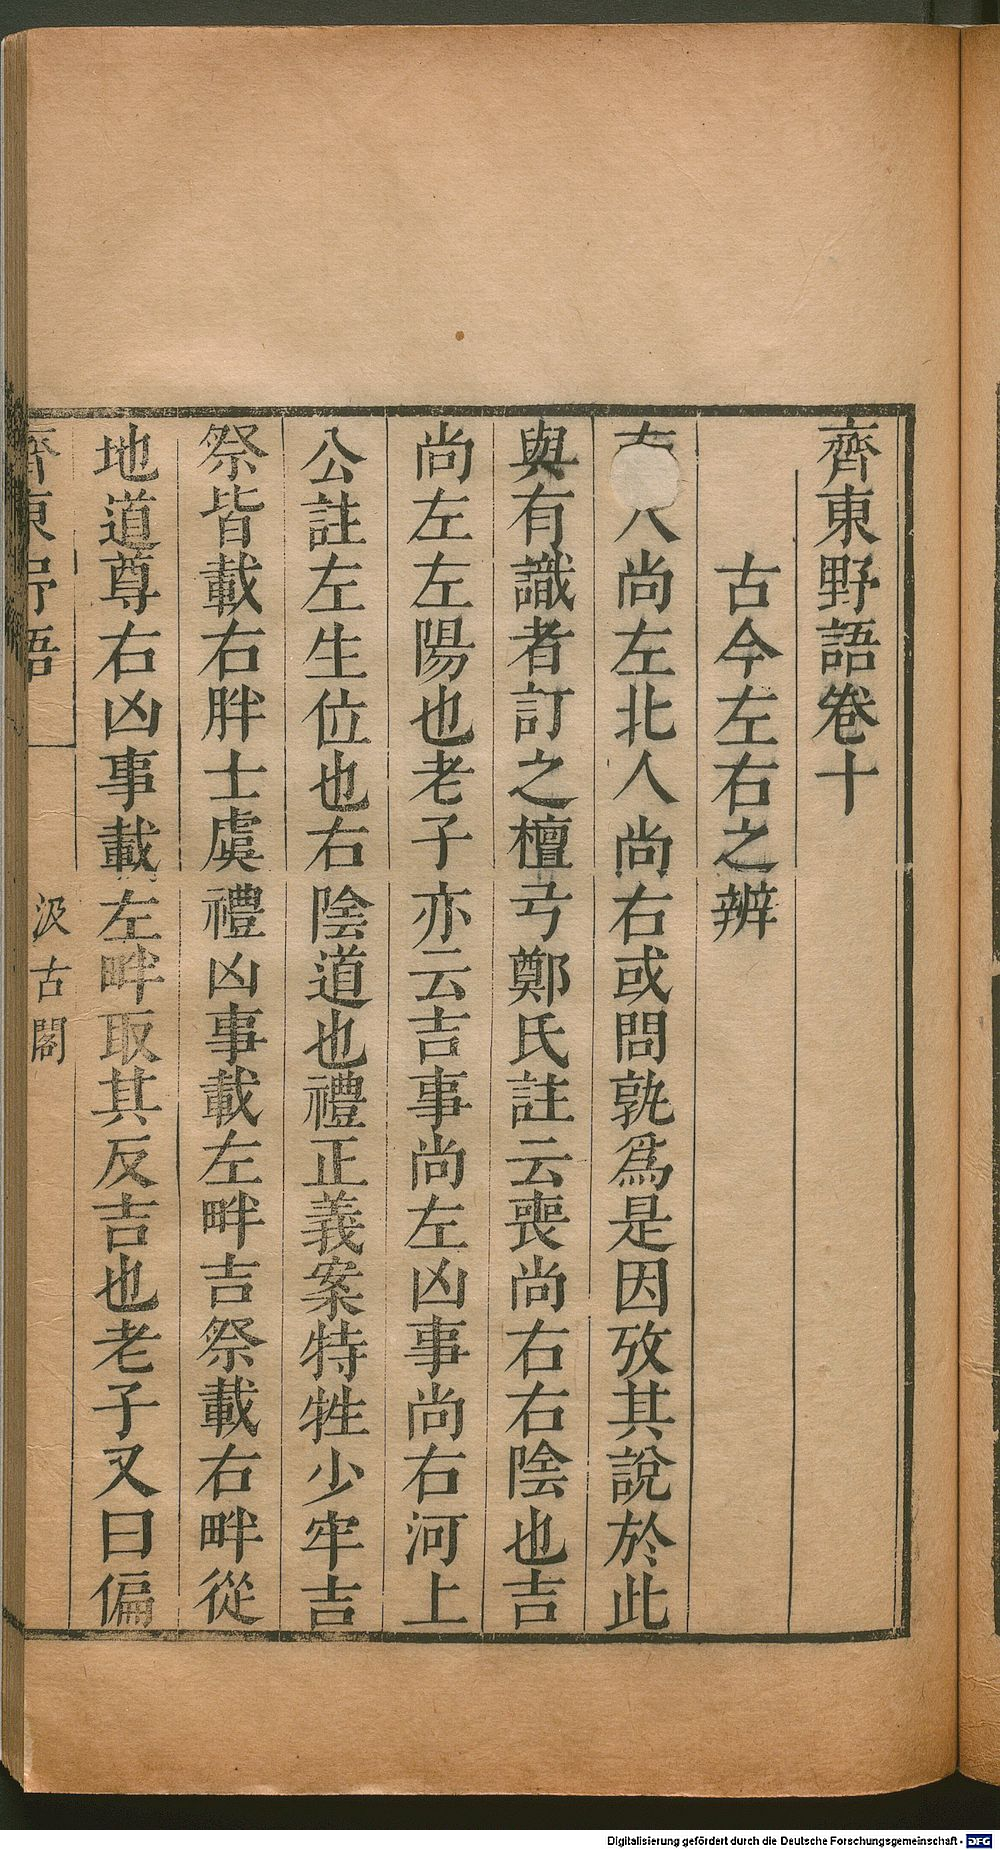 齊東野語卷十
古今左右之辨
人尚左北人尚右或問孰爲是因攷其說於此
與有識者訂之檀弓鄭氏註云喪尚右右陰也吉
尚左左陽也老子亦云吉事尚左凶事尚右河上
公註左生位也右陰道也禮正義案特牲少牢吉
祭皆載右胖士虞禮凶事載左畔吉祭載右畔從
地道尊右凶事載左畔取其反吉也老子又曰偏
齊東野語
汲古閣
Digitalisierung gefördert durch die Deutsche Forschungsgemeinschaft - DFG